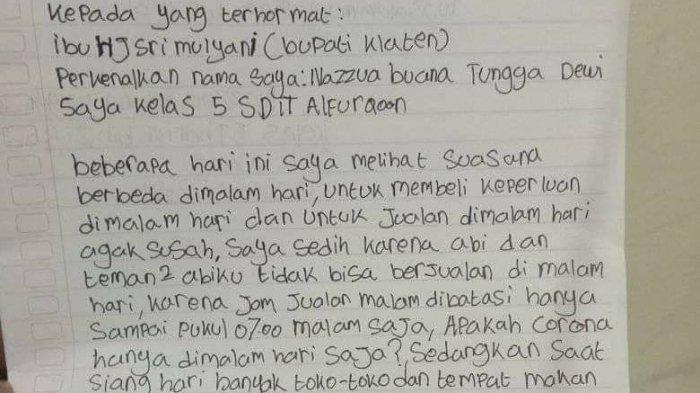 Kepada yang terhormat:
ibu HJ Sri mulyani (bupati Klaten)
Perkenalkan nama Saya: Nazzua buana Tungga Dewi
Saya Kelas 5 SDIT ALFurqoon
beberapa hari ini Saya melihat Suasana
berbeda dimalam hari, untuk membeli Keperluan
dimalam hari dan untuk Jualan dimalam hari
agak susah, Saya Sedih Karena abi dan
teman2 abiku tidak bisa berjualan di malam
hari, Karena Jam Jualan malam dibatasi hanya
Sampai pukul 07.00 malam Saja, Apakah Corona
hanya dimalam hari Saja?, Sedangkan Saat
Siang hari banyak toko-toko dan tempat makan